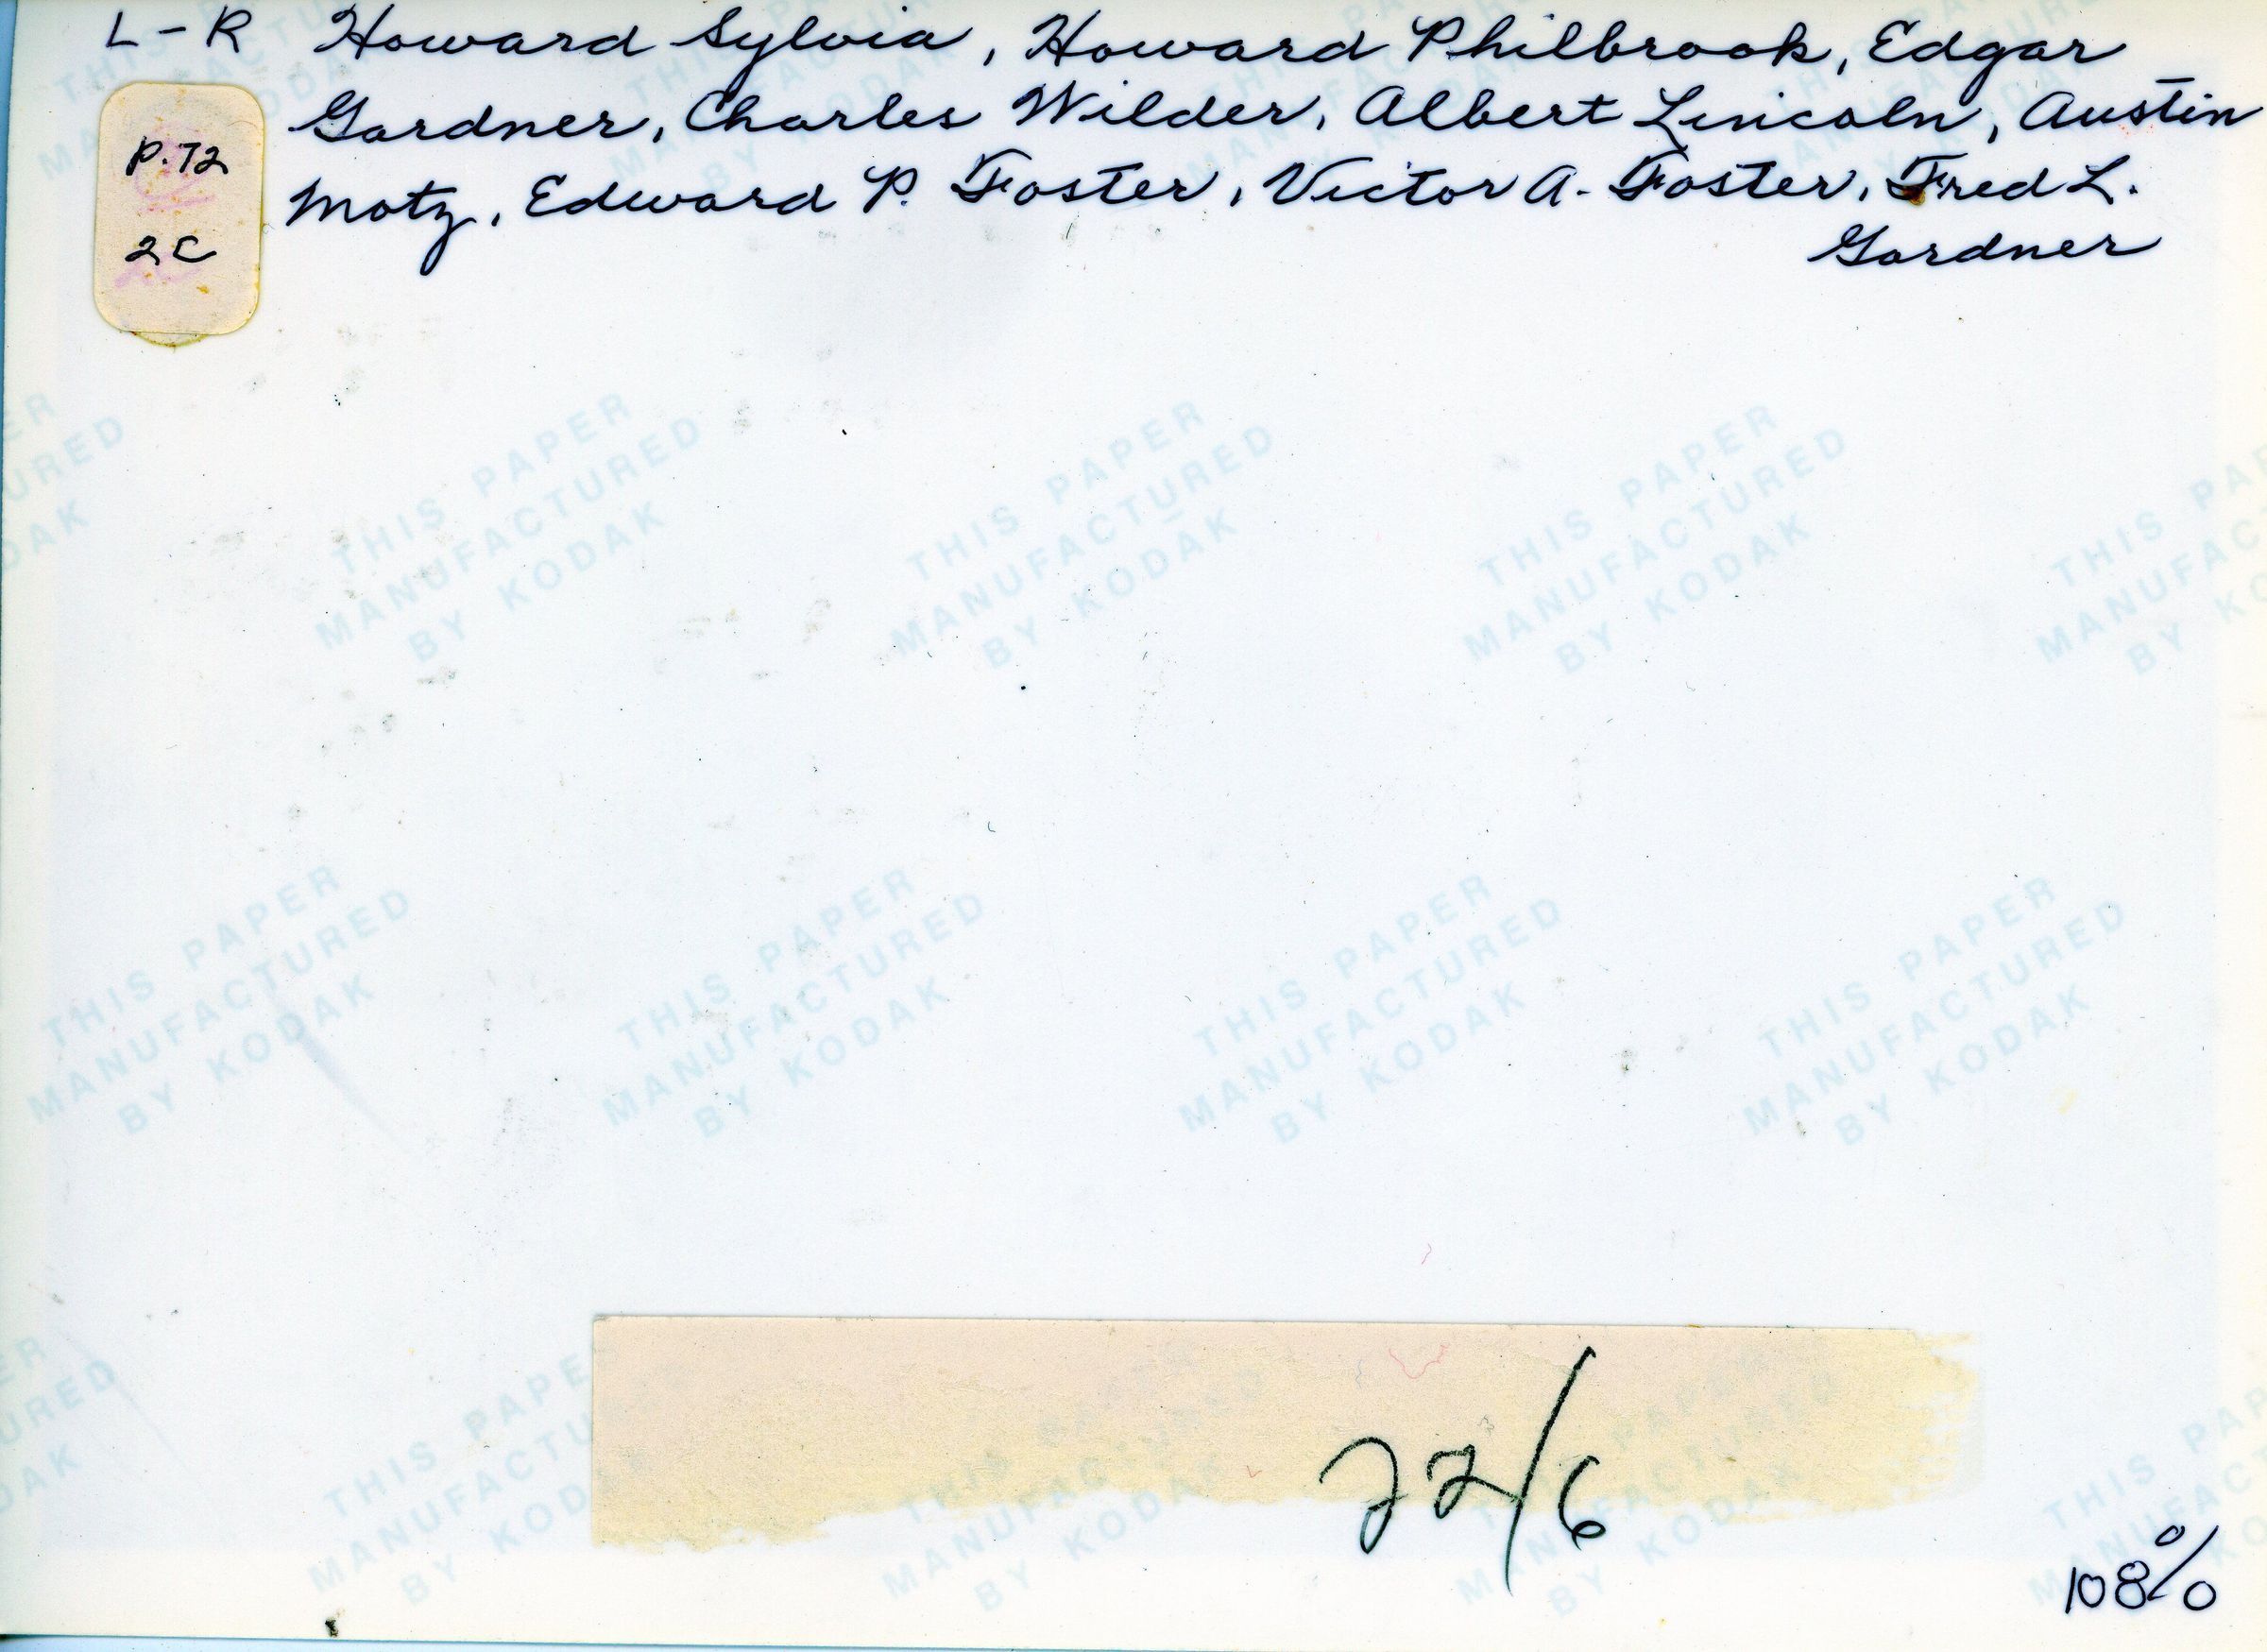 L-R Howard Sylvia, Howard Philbrook, Edgar
Gardner, Charles Wilder, Albert Lincoln, Austin
Motz, Edward P. Foster, Victor A. Foster, Fred L.
Gardner
P.72
2C
THIS PAPER
MANUFACTURED
BY KODAK
THIS PAPER
MANUFACTURED
BY KODAK
THIS PAPER
MANUFACTURED
BY KODAK
THIS PAPER
MANUFACTURED
BY KODAK
THIS PAPER
MANUFACTURED
BY KODAK
THIS PAPER
MANUFACTURED
BY KODAK
THIS PAPER
MANUFACTURED
BY KODAK
22/6
108%